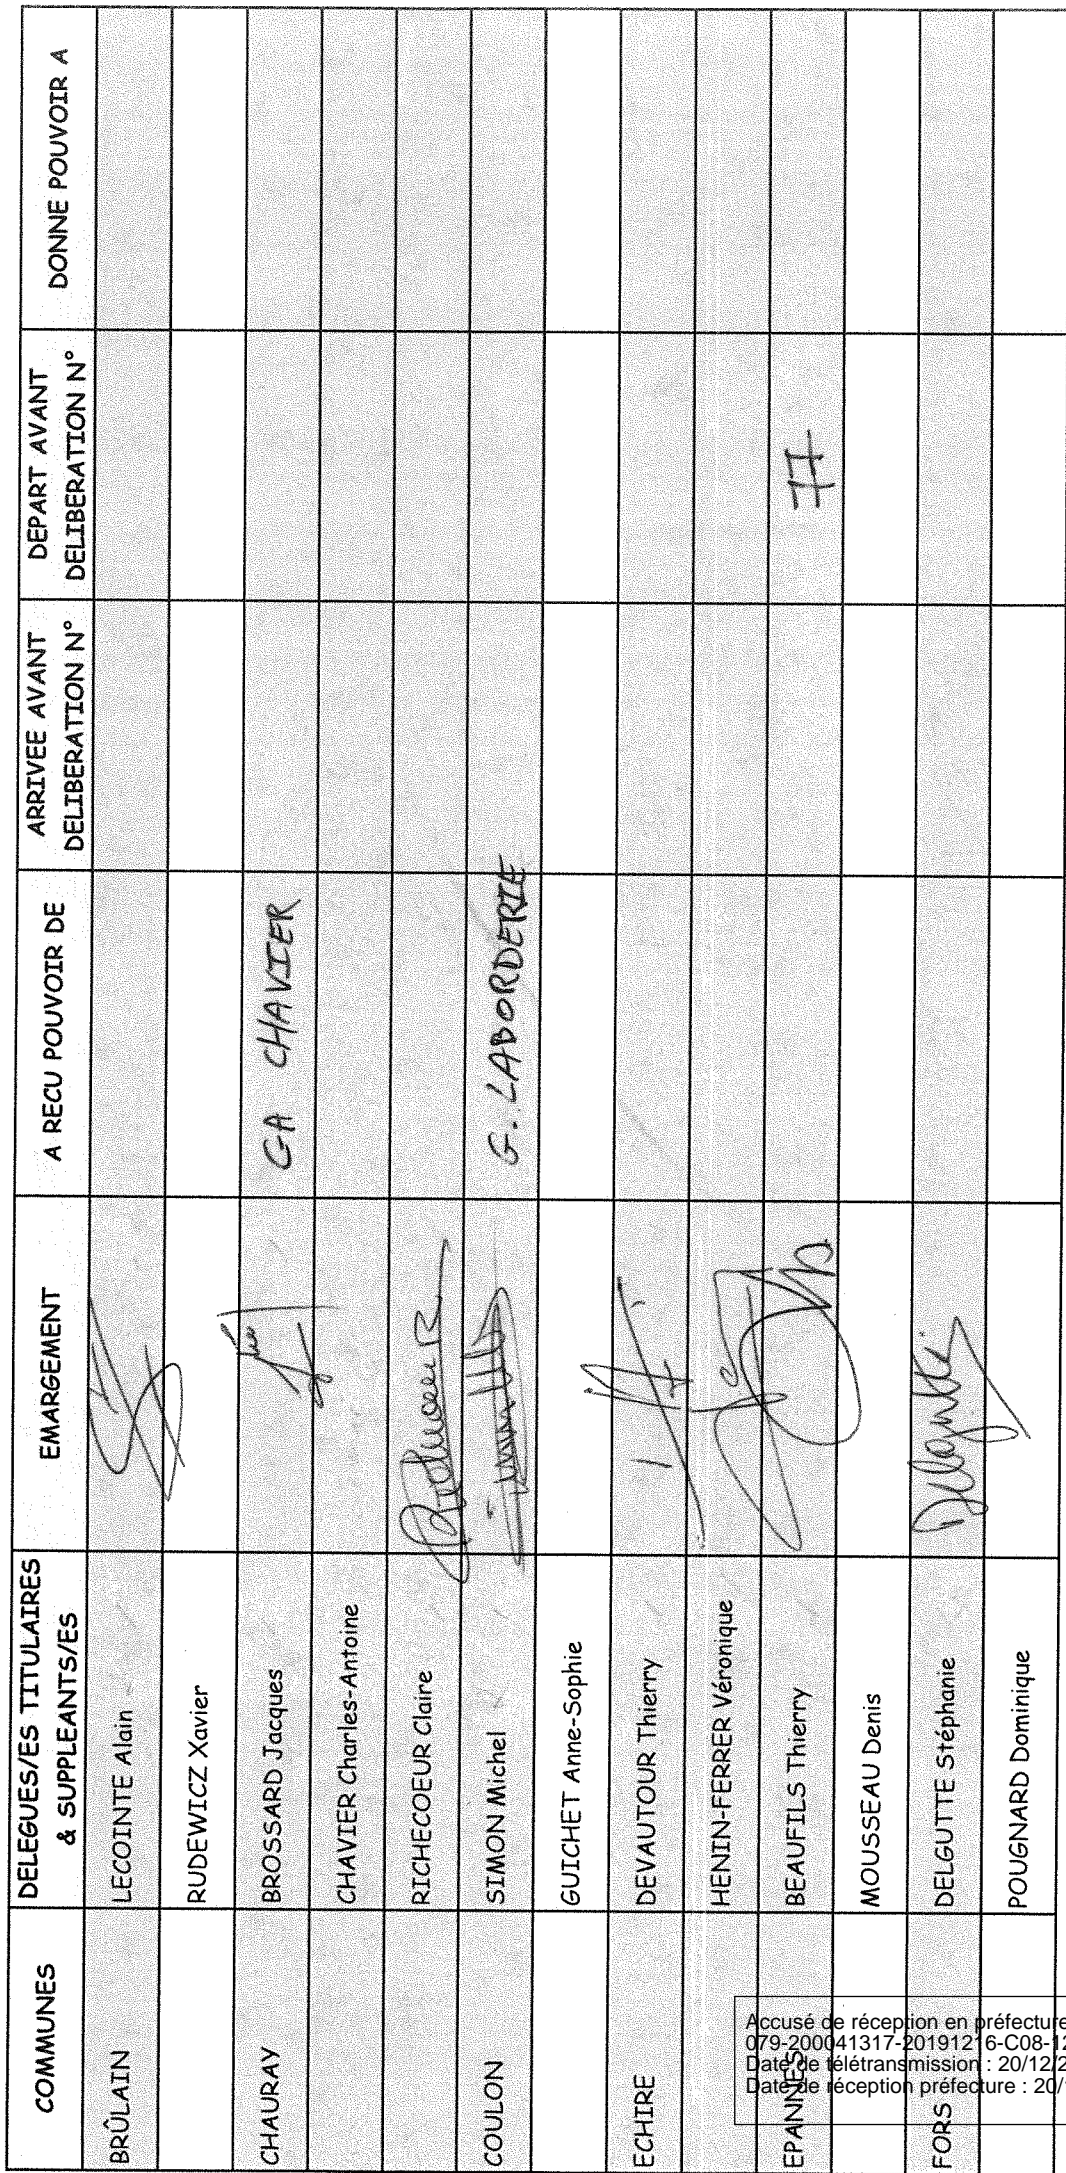 COMMUNES DELEGUES/ES TITULAIRES & SUPPLEANTS/ES EMARGEMENT A RECU POUVOIR DE ARRIVEE AVANT DELIBERATION N° DEPART AVANT DELIBERATION N° DONNE POUVOIR A
BRÛLAIN LECOINTE Alain
RUDEWICZ Xavier
CHAURAY BROSSARD Jacques CA CHAVIER
CHAVIER Charles-Antoine
RICHECOEUR Claire
COULON SIMON Michel G. LABORDERIE
GUICHET Anne-Sophie
ECHIRE DEVAUTOUR Thierry
HENIN-FERRER Véronique
EPANNES BEAUFILS Thierry 77
MOUSSEAU Denis
FORS DELGUTTE Stéphanie Delgutte
POUGNARD Dominique
Accusé de réception en préfecture
079-200041317-20191216-C08-12
Date de télétransmission : 20/12/2
Date de réception préfecture : 20/